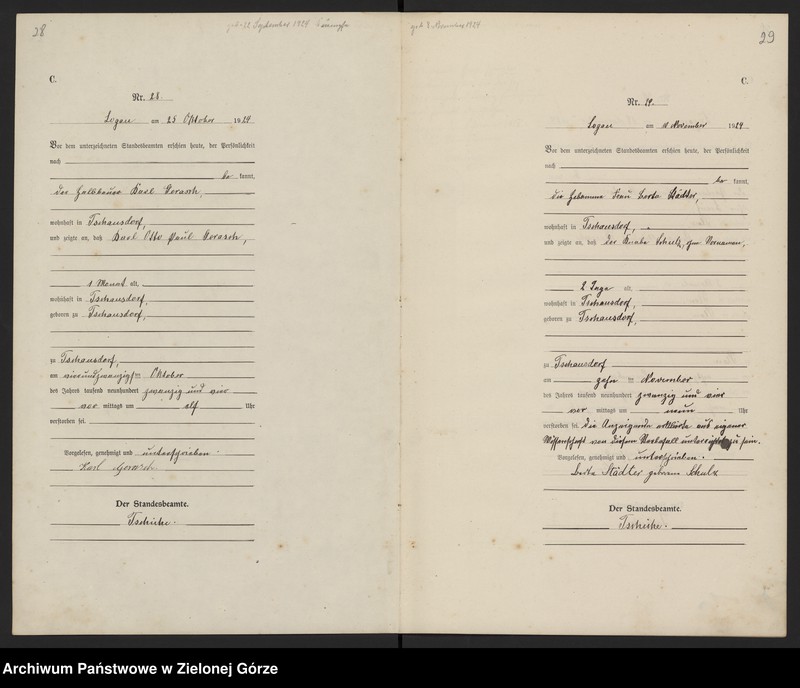 28
geb. 12 September 1924
C.
Nr. 28.
Logau am 25 Oktober 1924
Vor dem unterzeichneten Standesbeamten erschien heute, der Persönlichkeit
nach
be kannt,
der Halbbauer Karl Gorasch,
wohnhaft in Tschausdorf,
und zeigte an, daß Karl Otto Paul Gorasch,
1 Monat alt,
wohnhaft in Tschausdorf,
geboren zu Tschausdorf,
zu Tschausdorf,
am vierundzwanzigsten Oktober
des Jahres tausend neunhundert zwanzig und vier
vor mittags um elf Uhr
verstorben sei.
Vorgelesen, genehmigt und unterschrieben.
Karl Gorasch
Der Standesbeamte.
Tschirke.
geb. 8 November 1924
29
C.
Nr. 29.
Logau am 11 November 1924
Vor dem unterzeichneten Standesbeamten erschien heute, der Persönlichkeit
nach
be kannt,
die Hebamme Frau Berta Städter,
wohnhaft in Tschausdorf,
und zeigte an, daß der Knabe Schulz, ohne Vornamen,
2 Tage alt,
wohnhaft in Tschausdorf,
geboren zu Tschausdorf,
zu Tschausdorf
am zehn ten November
des Jahres tausend neunhundert zwanzig und vier
vor mittags um neun Uhr
verstorben sei. Die Anzeigende erklärte aus eigener
Wissenschaft von diesem Sterbefall unterrichtet zu sein.
Vorgelesen, genehmigt und unterschrieben.
Berta Städter geborene Schulz
Der Standesbeamte.
Tschirke.
Archiwum Państwowe w Zielonej Górze